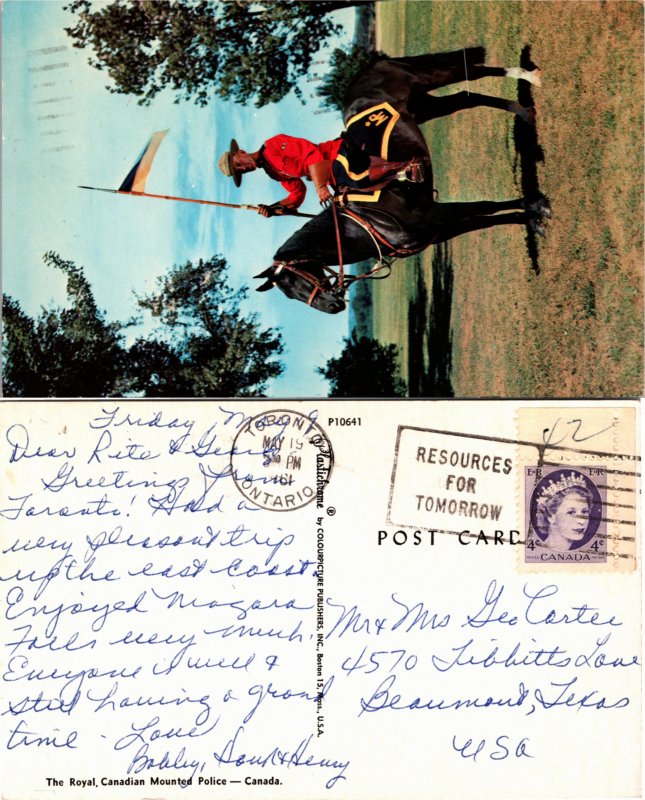 MP
Friday, May 19
Dear Rita & George
Greetings from
Toronto! Had a
very pleasant trip
up the east coast &
Enjoyed Niagara
Falls very much.
Everyone is well &
still having a grand
time - Love
Bobby, Hank & Henry
The Royal Canadian Mounted Police — Canada.
P10641
Plastichrome ® by COLOURPICTURE PUBLISHERS, INC., Boston 15, Mass., U.S.A.
TORONTO
MAY 19
PM
1961
ONTARIO
RESOURCES
FOR
TOMORROW
42
E II R E II R
4¢ 4¢
CANADA
POST CARD
Mr & Mrs Geo Carter
4570 Tibbitts Lane
Beaumont, Texas
USA